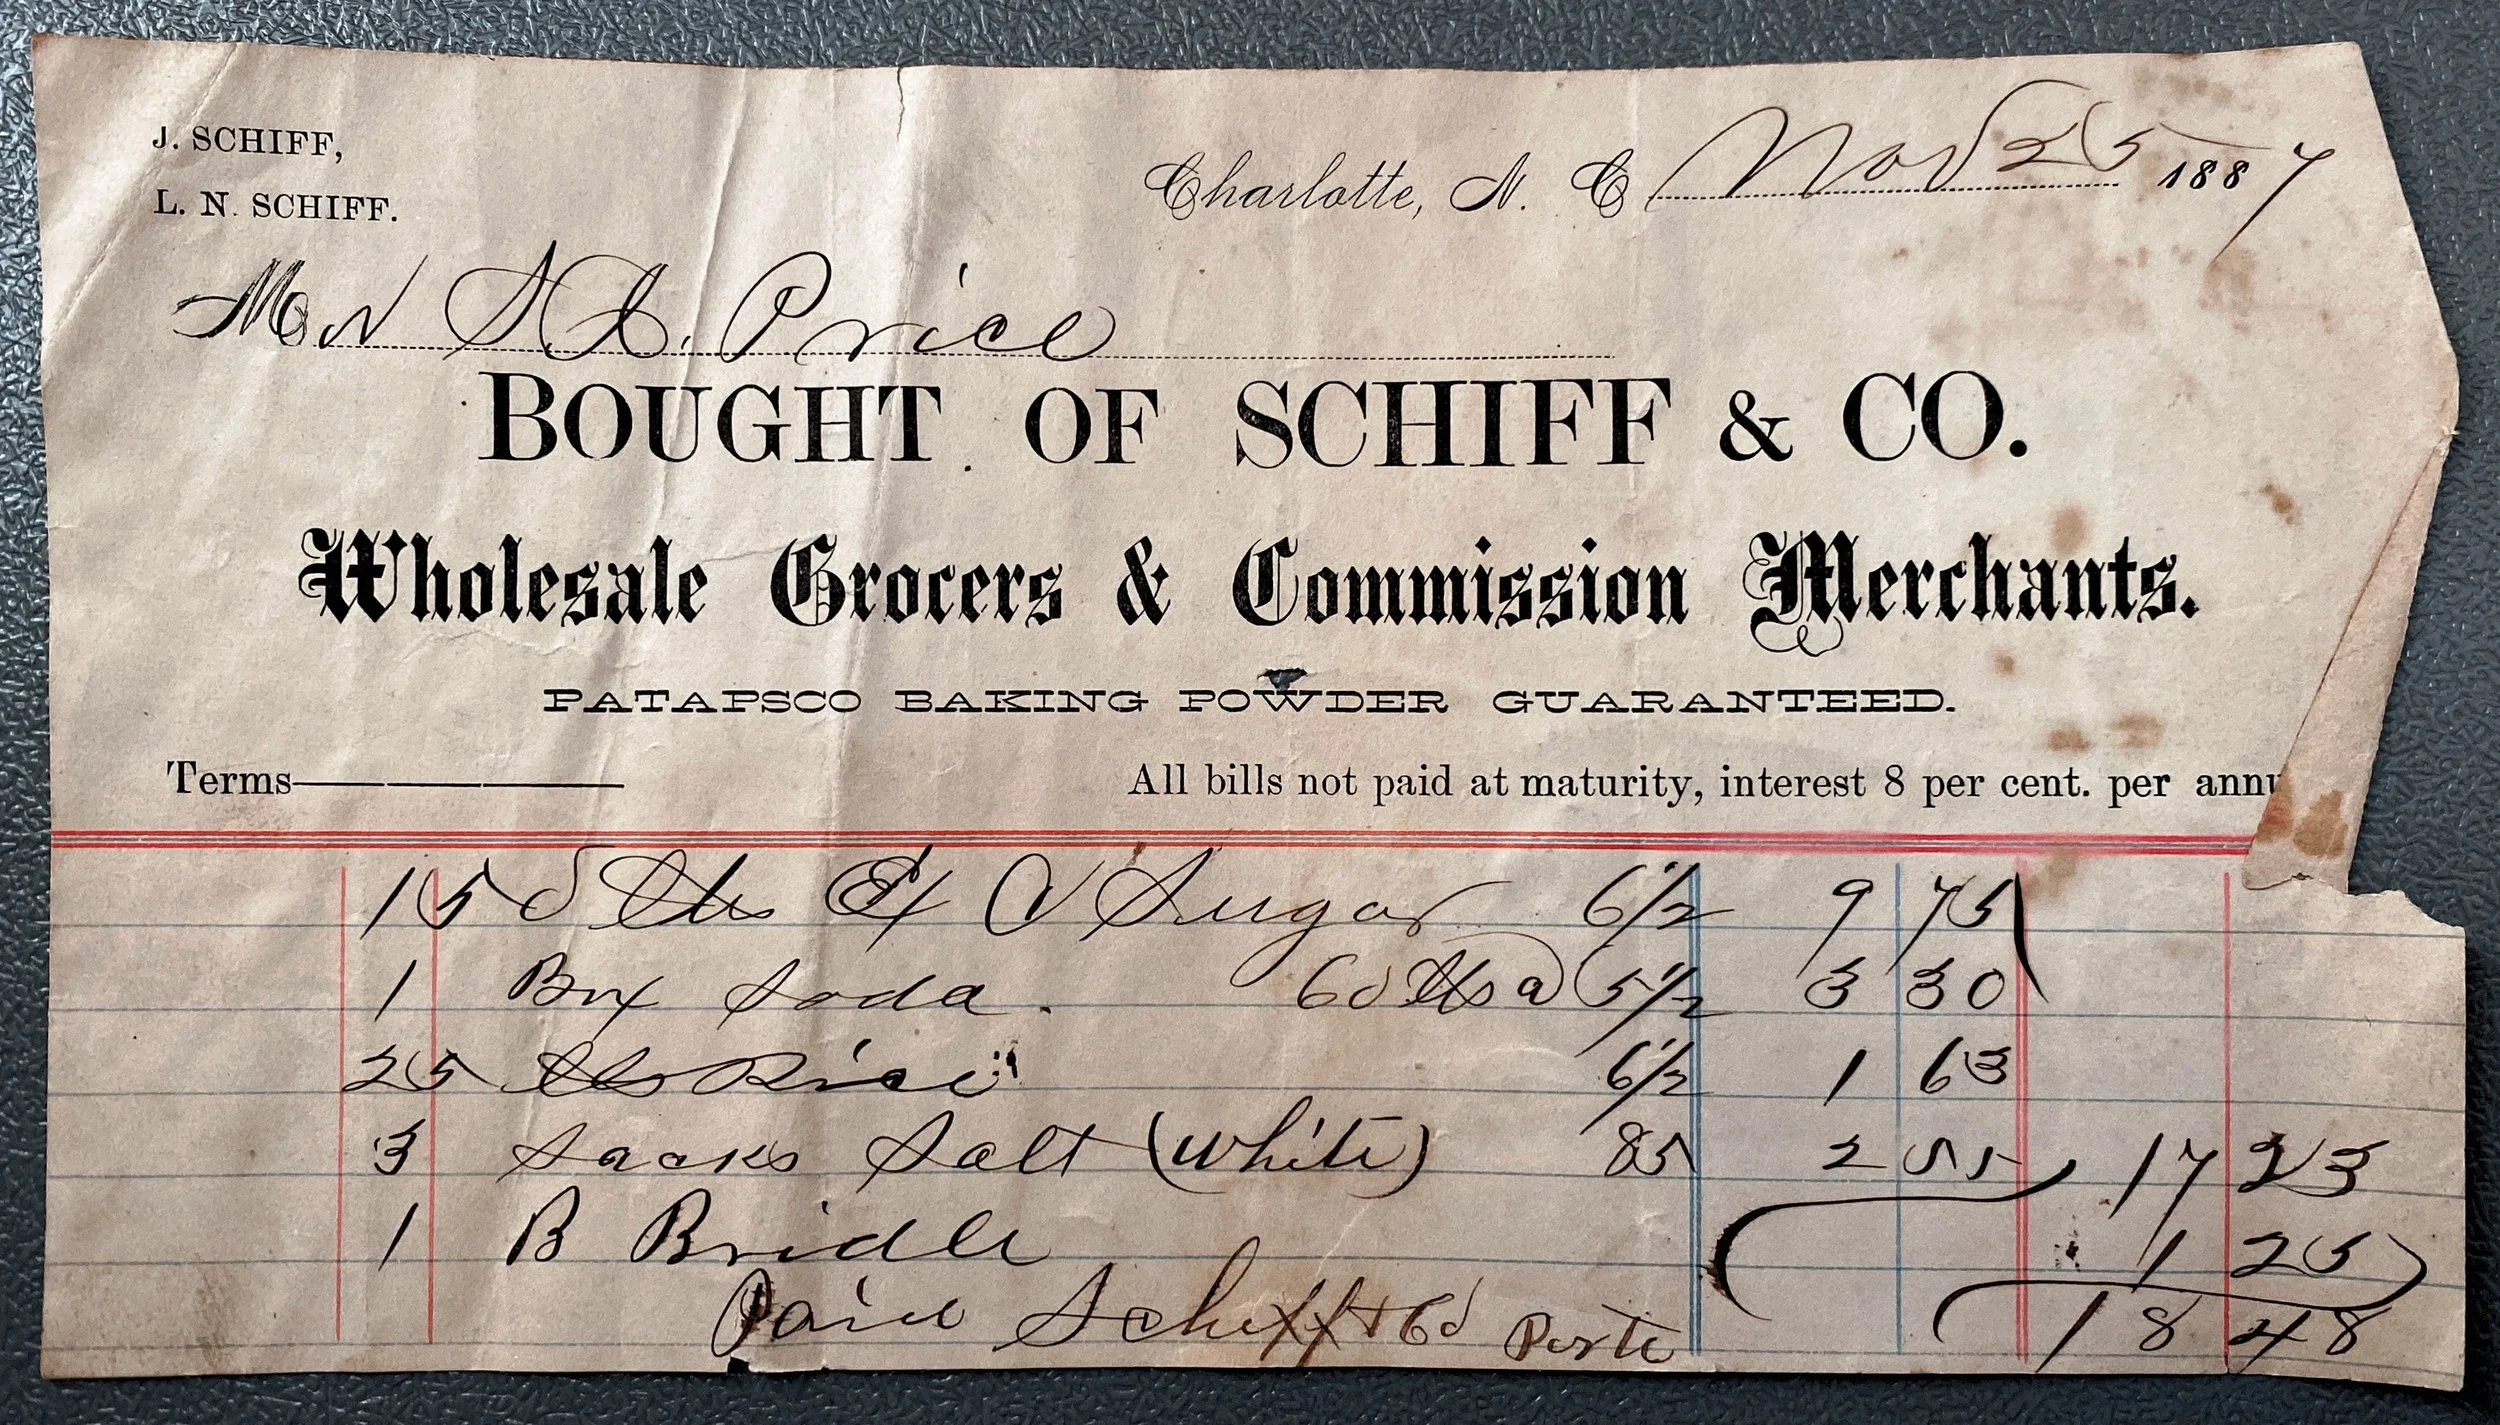 J. SCHIFF,
L. N. SCHIFF.
Charlotte, N. C Nov 25 1887
Mr S. A. Price
BOUGHT OF SCHIFF & CO.
Wholesale Grocers & Commission Merchants.
PATAPSCO BAKING POWDER GUARANTEED.
Terms All bills not paid at maturity, interest 8 per cent. per annu
150 lbs Ex C Sugar 6 1/2 9 75
1 Box Soda. 60 lbs a 5 1/2 3 30
25 lbs Rice 6 1/2 1 63
3 Sacks Salt (White) 85 2 55 17 23
1 B Bridle 1 25
Paid Schiff & Co 18 48